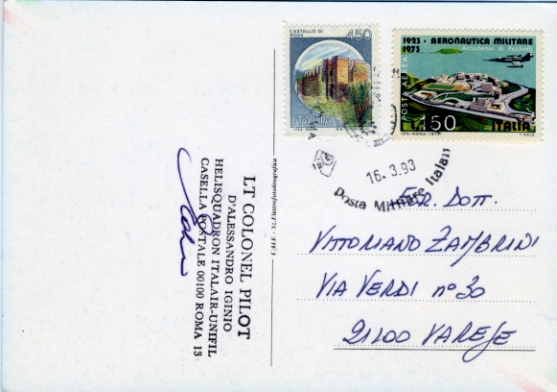 CASTELLO DI
450
ITALIA
1923 - AERONAUTICA MILITARE
1973
Accademia di Pozzuoli
POSTA AEREA
L.150 ITALIA
16.3.93
Posta Militare Italiana
EGR. DOTT.
VITTORIANO ZAMBRINI
VIA VERDI n° 30
21100 VARESE
LT COLONEL PILOT
D'ALESSANDRO IGINIO
HELISQUADRON ITALAIR-UNIFIL
CASELLA POSTALE 00100 ROMA 13